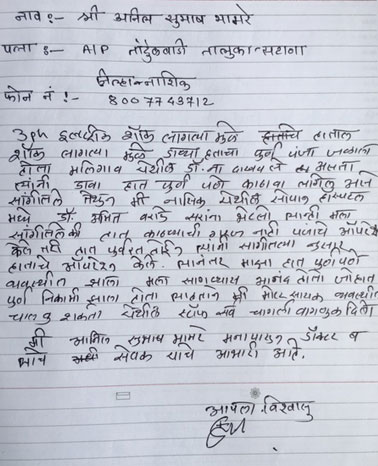 नाव :- श्री अनिल सुभाष भामरे
पत्ता :- A/P तांदुळवाडी तालुका-सटाणा
जिल्हा-नाशिक
फोन नं :- 8007743712
3ph इलेक्ट्रीक शॉक लागल्या मुळे हाताला
शॉक लागल्या मुळे डाव्या हाताचा पुर्ण पंजा जळाला
होता मालेगाव येथील डॉ. ना दाखवले असता
त्यांनी डावा हात पुर्ण पणे काढावा लागेल असे
सांगीतले तेथुन मी नाशिक येथील हॉस्पीटल
मध्ये डॉ. सरांना भेटलो त्यांनी मला
सांगीतले की हात काढण्याची गरज नाही पंजाचे ऑपरेशन
केले तरी हात पुर्ववत होईल त्यांनी सांगीतल्या नुसार
हाताचे ऑपरेशन केले. त्यानंतर माझा हात पुर्ण पणे
व्यवस्थीत झाला मला सांगण्यास आनंद होतो जो हात
पुर्ण निकामी झाला होता त्या हातान मी व्यवस्थीत
चालवु शकतो येथील स्टाफ सर्व चांगली वागणुक दिली
मी अनिल सुभाष भामरे मनापासुन डॉक्टर व
सेवक यांचे आभारी आहे.
आपला विश्वासु